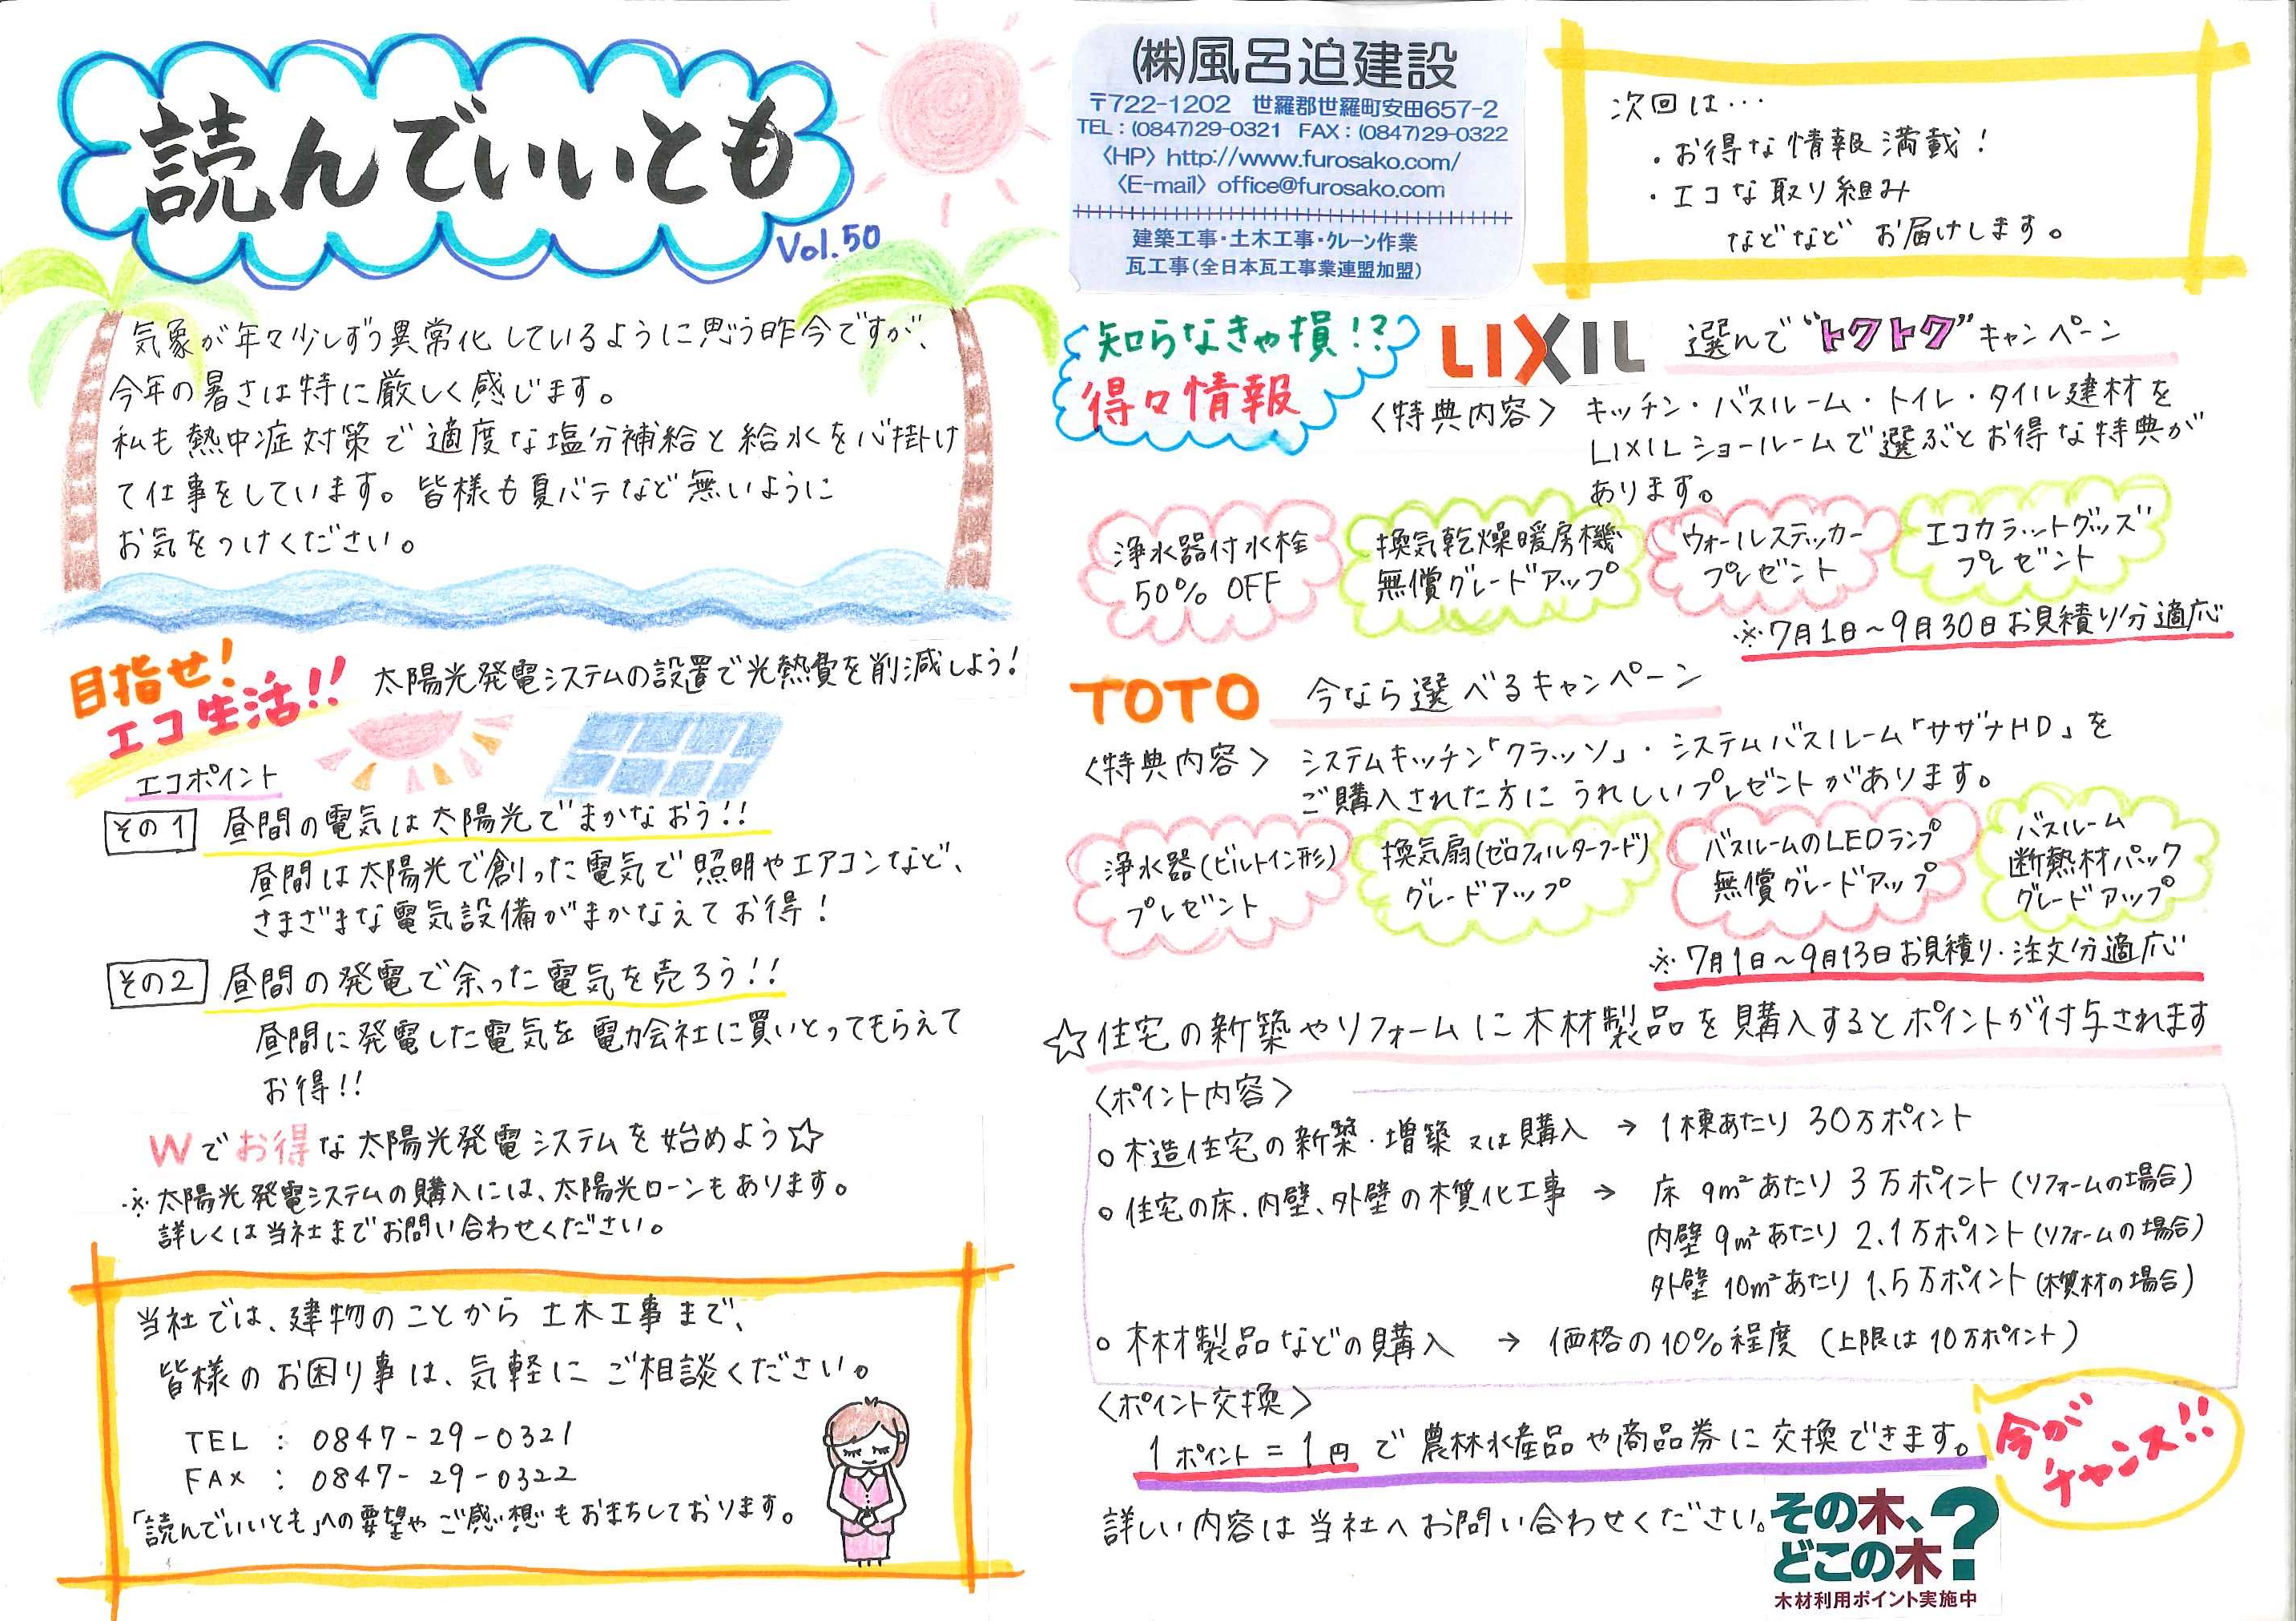 読んでいいとも
Vol.50
気象が年々少しずつ異常化しているように思う昨今ですが、
今年の暑さは特に厳しく感じます。
私も熱中症対策で適度な塩分補給と給水を心掛け
て仕事をしています。皆様も夏バテなど無いように
お気をつけください。
目指せ!
エコ生活!!
太陽光発電システムの設置で光熱費を削減しよう!
エコポイント
その1 昼間の電気は太陽光でまかなおう!!
昼間は太陽光で創った電気で照明やエアコンなど、
さまざまな電気設備がまかなえてお得!
その2 昼間の発電で余った電気を売ろう!!
昼間に発電した電気を電力会社に買いとってもらえて
お得!!
Wでお得な太陽光発電システムを始めよう☆
※太陽光発電システムの購入には、太陽光ローンもあります。
詳しくは当社までお問い合わせください。
当社では、建物のことから土木工事まで、
皆様のお困り事は、気軽にご相談ください。
TEL : 0847-29-0321
FAX : 0847-29-0322
「読んでいいとも」への要望やご感想もおまちしております。
㈱風呂迫建設
〒722-1202 世羅郡世羅町安田657-2
TEL:(0847)29-0321 FAX:(0847)29-0322
〈HP〉http://www.furosako.com/
〈E-mail〉office@furosako.com
建築工事・土木工事・クレーン作業
瓦工事(全日本瓦工事業連盟加盟)
次回は…
・お得な情報満載!
・エコな取り組み
などなど お届けします。
知らなきゃ損!?
得々情報
LIXIL 選んで"トクトク"キャンペーン
〈特典内容〉 キッチン・バスルーム・トイレ・タイル建材を
LIXILショールームで選ぶとお得な特典が
あります。
浄水器付水栓
50% OFF
換気乾燥暖房機
無償グレードアップ
ウォールステッカー
プレゼント
エコカラットグッズ
プレゼント
※7月1日〜9月30日お見積り分適応
TOTO 今なら選べるキャンペーン
〈特典内容〉 システムキッチン「クラッソ」・システムバスルーム「サザナHD」を
ご購入された方にうれしいプレゼントがあります。
浄水器(ビルトイン形)
プレゼント
換気扇(ゼロフィルターフード)
グレードアップ
バスルームのLEDランプ
無償グレードアップ
バスルーム
断熱材パック
グレードアップ
※7月1日〜9月13日お見積り・注文分適応
☆住宅の新築やリフォームに木材製品を購入するとポイントが付与されます
〈ポイント内容〉
○木造住宅の新築・増築又は購入 → 1棟あたり 30万ポイント
○住宅の床、内壁、外壁の木質化工事 → 床 9m²あたり 3万ポイント(リフォームの場合)
内壁 9m²あたり 2.1万ポイント(リフォームの場合)
外壁 10m²あたり 1.5万ポイント(木質材の場合)
○木材製品などの購入 → 価格の10%程度(上限は10万ポイント)
〈ポイント交換〉
1ポイント=1円で農林水産品や商品券に交換できます。
今が
チャンス!!
詳しい内容は当社へお問い合わせください。
その木、
どこの木?
木材利用ポイント実施中